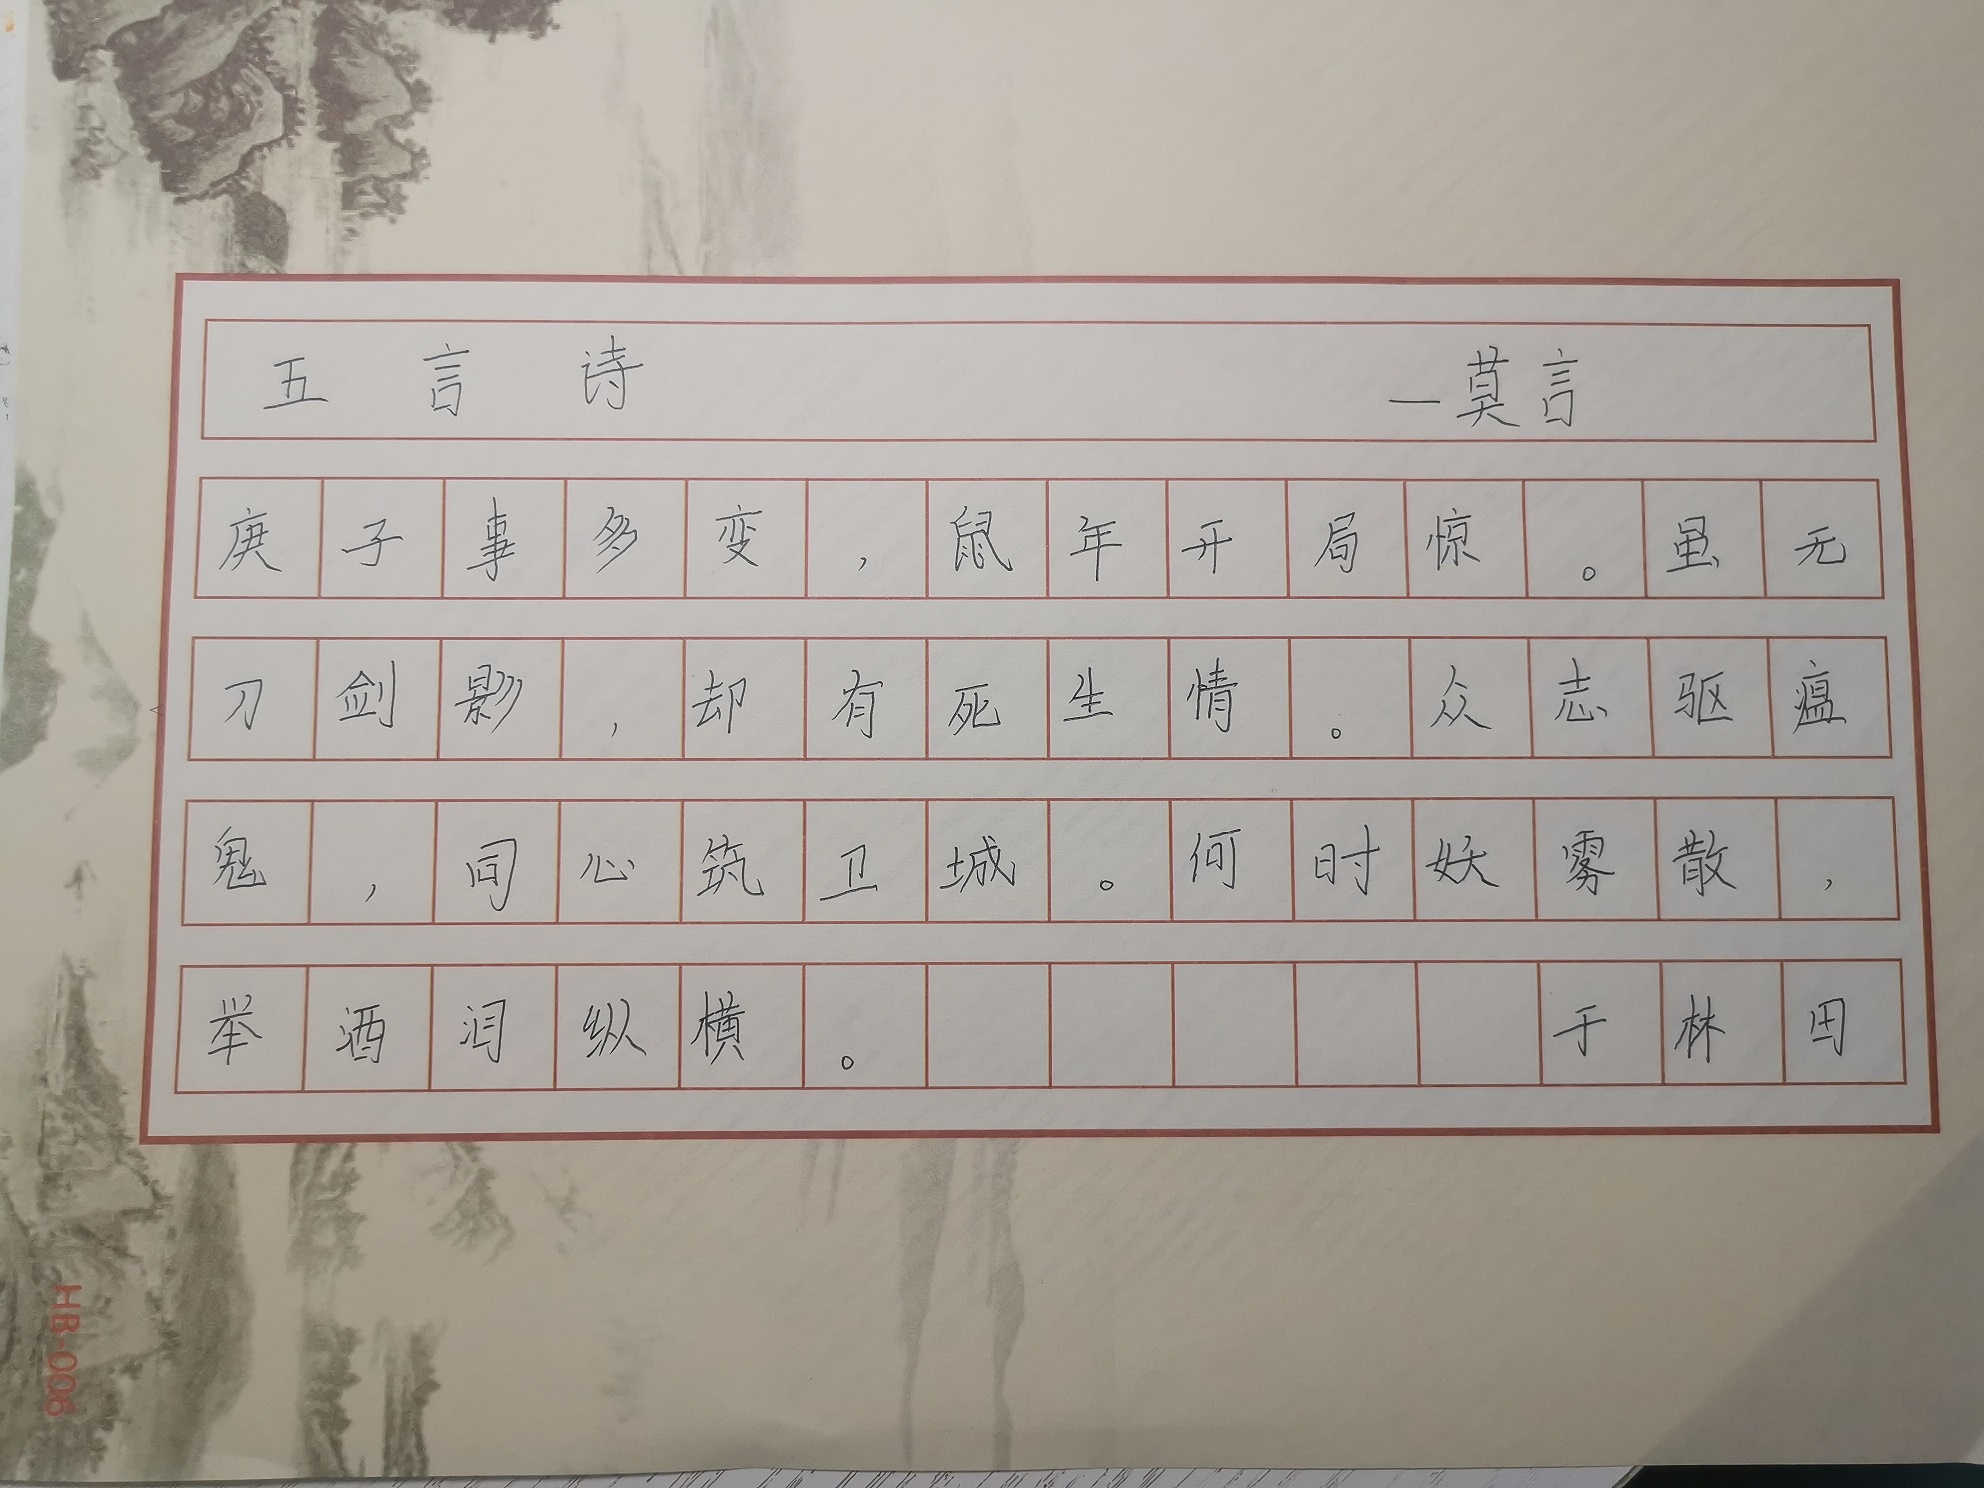 五言诗 —莫言
庚子事多变，鼠年开局惊。虽无
刀剑影，却有死生情。众志驱瘟
鬼，同心筑卫城。何时妖雾散，
举酒泪纵横。 于林田
HB-006